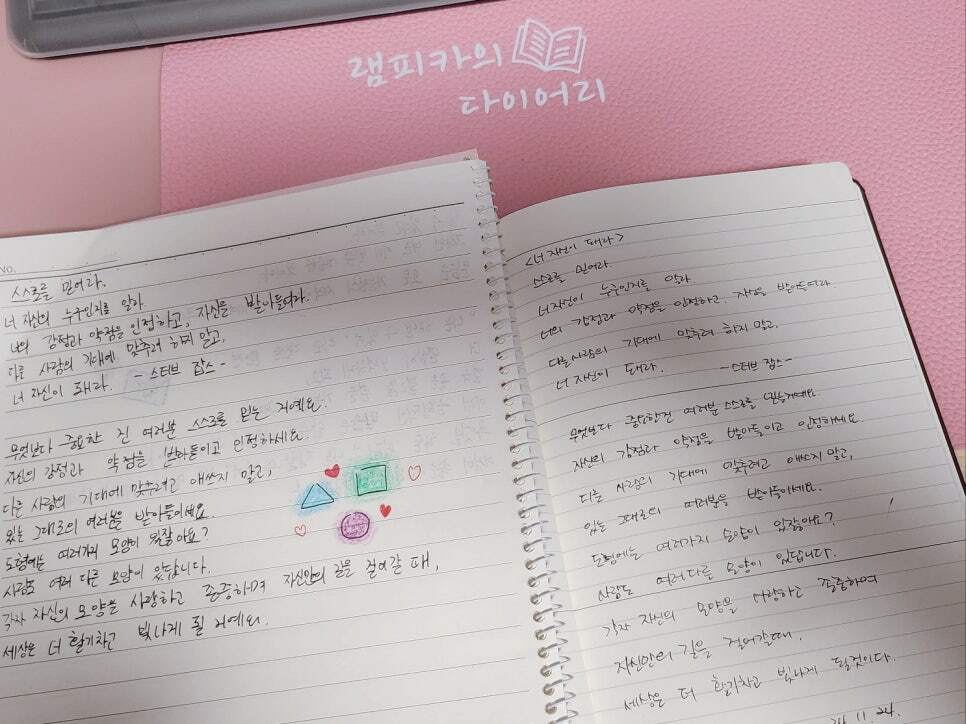 램피카의
다이어리
No.
스스로를 믿어라.
너 자신의 누구인지를 알라
너의 강점과 약점을 인정하고, 자신을 받아들여라.
다른 사람의 기대에 맞추려 하지 말고,
너 자신이 돼라. - 스티브 잡스 -
무엇보다 중요한 건 여러분 스스로를 믿는 거예요.
자신의 강점과 약점을 받아들이고 인정하세요
다른 사람의 기대에 맞추려고 애쓰지 말고,
있는 그대로의 여러분을 받아들이세요.
도형에는 여러가지 모양이 있잖아요?
사람도 여러 다른 모양이 있습니다.
각자 자신의 모양을 사랑하고 존중하며 자신만의 길을 걸어갈 때,
세상은 더 활기차고 빛나게 될 거예요.
<너 자신이 돼라>
스스로를 믿어라
너 자신이 누구인지를 알라
너의 강점과 약점을 인정하고, 자신을 받아들여라
다른 사람의 기대에 맞추려 하지 말고,
너 자신이 돼라. - 스티브 잡스 -
무엇보다 중요한건 여러분 스스로를 믿는거예요.
자신의 강점과 약점을 받아들이고 인정하세요.
다른 사람의 기대에 맞추려고 애쓰지 말고,
있는 그대로의 여러분을 받아들이세요.
도형에는 여러가지 모양이 있잖아요?
사람도 여러다른 모양이 있답니다.
각자 자신의 모양을 사랑하고 존중하며
자신만의 길을 걸어갈때.
세상은 더 활기차고 빛나게 될것이다.
24. 11. 24.